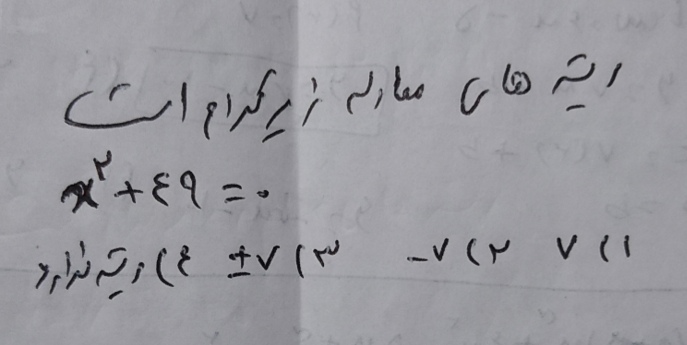 ریشه های معادله زیر کدام است
x² + ٤٩ = ۰
۱) ۷ ۲) -۷ ۳) ±۷ ٤) ریشه ندارد